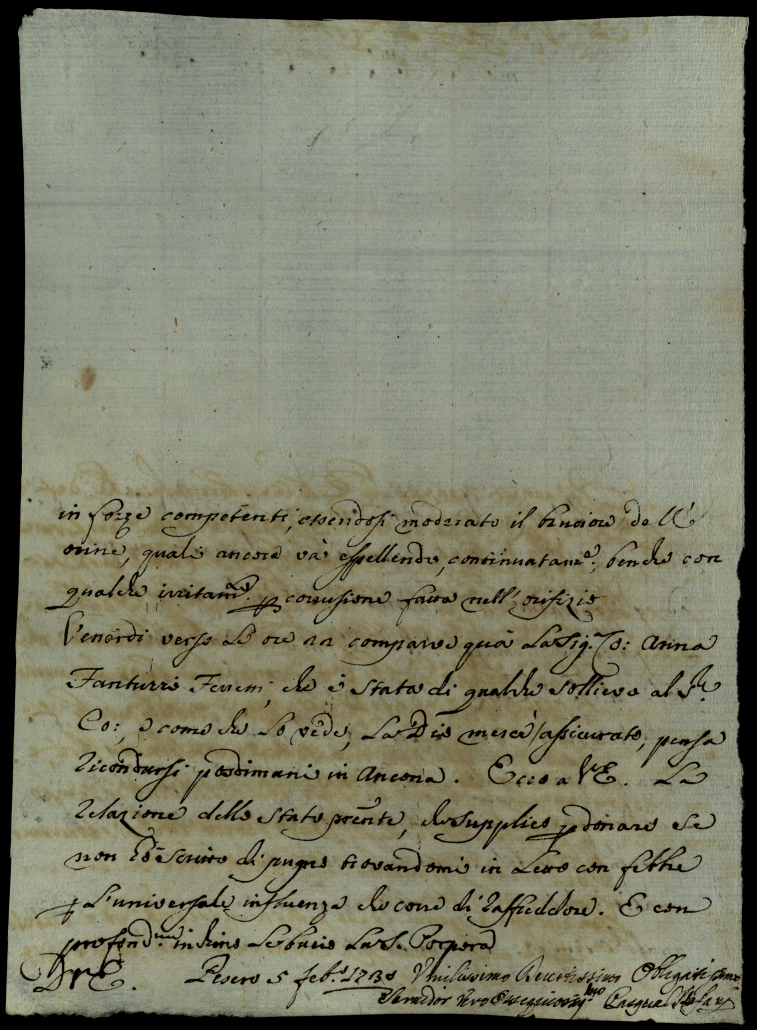 in forze competenti, essendosi moderato il bruciore dell'
orine, quale ancora và espellendo, continuatam.e, benche con
qualche irritam.e p corrusione fatta nell'orifizio
Venerdì verso le ore 22 comparve quà la Sig.ra Co: Anna
Ferretti, che è stata di qualche sollievo al S.r
Co:, e come che lo vede, la Dio mercè, assicurato, pensa
ricondursi posdimani in Ancona. Ecco a V.E. la
relazione dello stato pnte, che supplico pdonare se
non l'ò scritto di pugno trovandomi in letto con febbre
p l'universale influenza che corre di raffreddore. E con
profond.mo inchino le bacio la S. Porpora
D V.E. Pesero 5 feb.o 1730 Umilissimo Obligatissimo
Servidor vero Pasqual